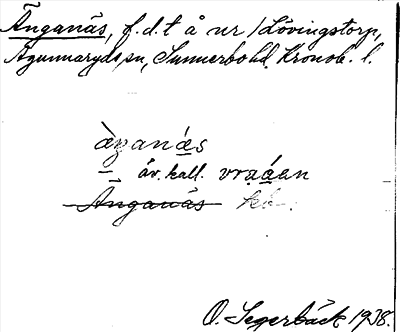 Änganäs, f.d.t å nr 1 Lövingstorp,
Agunnaryds sn, Sunnerbo hd. Kronob. l.
àŋanás
äv. kall. vráåan
Änganäs
O. Segerbäck 1938.